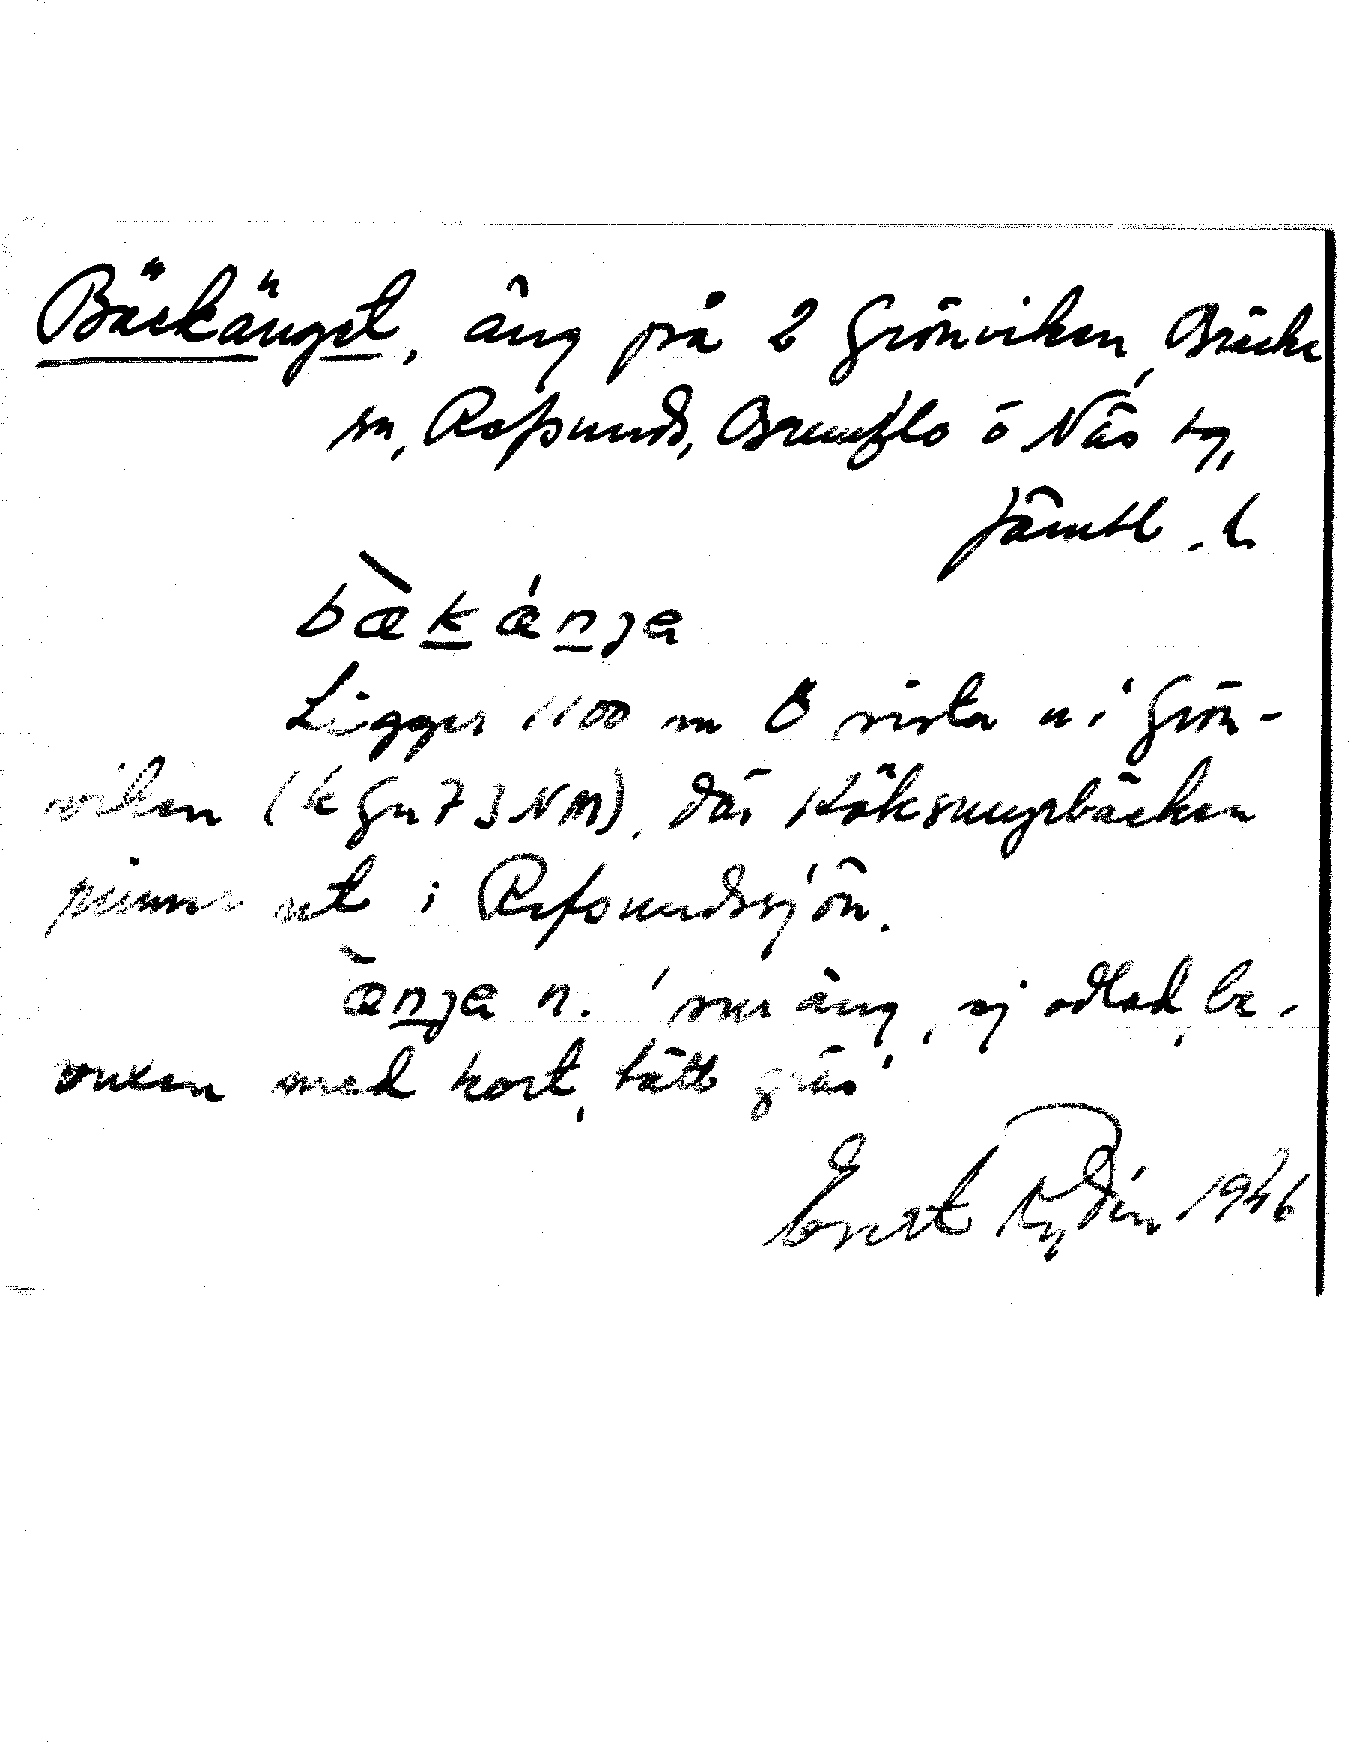 Bäckänget, äng på 2 Grönviken, Bräcke
sn, Refsunds, Brunflo o Näs tg,
Jämtl. l.
bækænja
Ligger 1100 m Ö sista n i Grön-
viken (k Gn 7 3 NM), där Köksmyrbäcken
rinner ut i Refsundssjön.
ænja n. 'sur äng, ej odlad, be-
vuxen med kort, tätt gräs'
Evert Rydin 1946